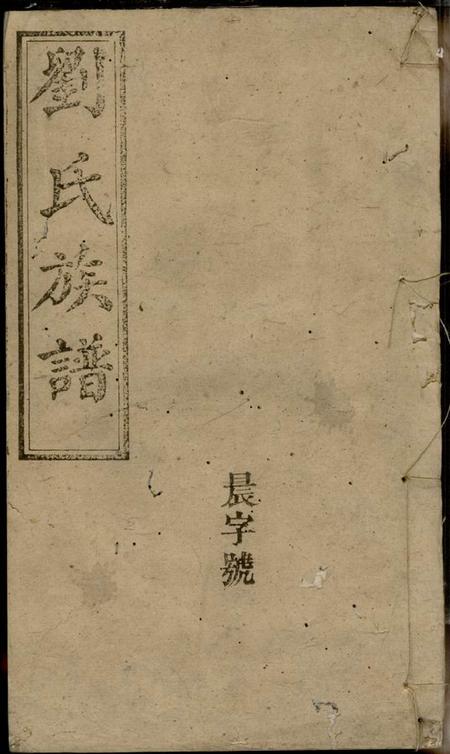 劉氏族譜
晨字號